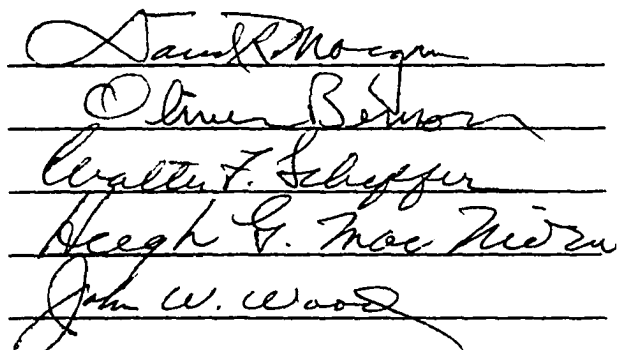 David R. Morgan
Oliver Benson
Walter F. Scheffer
Hugh G. MacNiven
John W. Wood